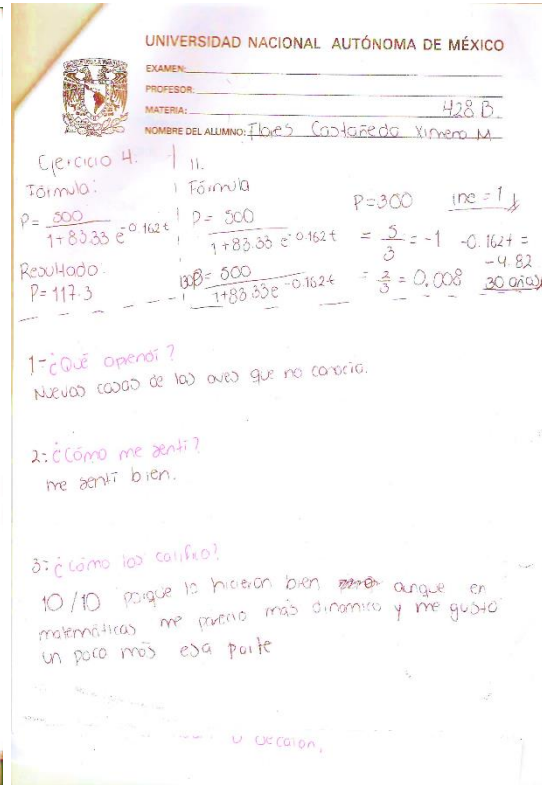 UNIVERSIDAD NACIONAL AUTÓNOMA DE MÉXICO
EXAMEN:
PROFESOR:
MATERIA: 428 B.
NOMBRE DEL ALUMNO: Flores Castañeda Ximena M
Ejercicio 4.
Fórmula:
P= 500 / 1+83.33 e^-0.162t
Resultado.
P= 117.3
II.
Fórmula
P= 500 / 1+83.33 e^-0.162t
= 500 / 1+83.33e^-0.162t
P=300 inc = 1
= 5/3 = -1 -0.162t =
-4.82
= 2/3 = 0.008 30 años
1-¿Qué aprendí?
Nuevas cosas de las aves que no conocía.
2-¿Cómo me sentí?
me sentí bien.
3-¿Cómo los califico?
10/10 porque lo hicieron bien aunque en
matemáticas me pareció más dinamico y me gustó
un poco más esa parte